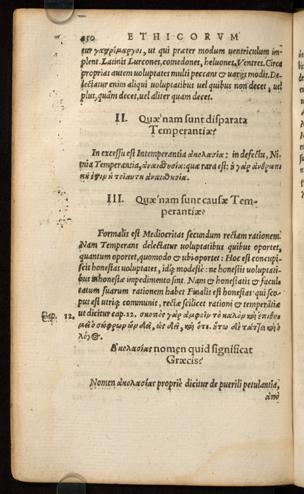 450 ETHICORVM
tur γαςρίμαργοι, ut qui præter modum uentriculum im-
plent. Latinis Lurcones, comedones, heluones, Ventres. Circa
proprias autem uoluptates multi peccant & uarijs modis. De-
lectatur enim aliqui uoluptatibus uel quibus non decet, uel
plus, quàm decet, uel aliter quam decet.
II. Quæ'nam sunt disparata
Temperantiæ?
In excessu est Intemperantia ἀκολασία: in defectu, Ni-
mia Temperantia, ἀναισθησία: quæ rara est: οὐ γὰρ ἀνθρωπι
κή ἐςιν ἡ τοιαύτη ἀναισθησία.
III. Quæ'nam sunt causæ Tem-
perantiæ?
Formalis est Mediocritas secundum rectam rationem.
Nam Temperans delectatur uoluptatibus quibus oportet,
quantum oportet, quomodo & ubi oportet: Hoc est concupi-
scit honestas uoluptates, idq; modestè: ne honestis uoluptati-
bus inhonestæ impedimento sint. Nam & honestatis & facul-
tatum suarum rationem habet Finalis est honestas: qui sco-
pus est utriq; communis, rectæ scilicet rationi & temperātiæ
Cap. 12. ut dicitur cap. 12. σκοπὸς γὰρ ἀμφοῖν τὸ καλὸν, καὶ ἐπιθυ
μεῖ ὁ σώφρων ὧν δεῖ, ὡς δεῖ, καὶ ὅτε. οὕτω δὲ τάττει καὶ ὁ
λόγος.
Ἀκολασίας nomen quid significat
Græcis?
Nomen ἀκολασίας propriè dicitur de puerili petulantia,
ἀπὸ